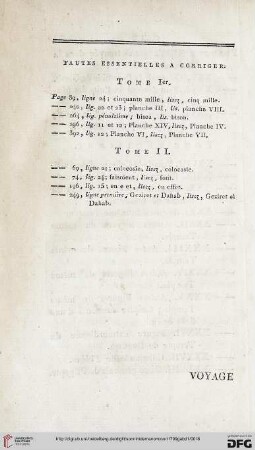 FAUTES ESSENTIELLES A CORRIGER.
TOME Ier.
Page 89, ligne 24; cinquante mille, lisez, cinq mille.
—— 250, lig. 22 et 23; planche III, lis. planche VIII.
—— 264, lig. pénultième; bisca, lis. bisen.
—— 296, lig. 11 et 12; Planche XIV, lisez, Planche IV.
—— 390, lig. 12; Planche VI, lisez, Planche VII.
TOME II.
—— 69, ligne 21; colocosie, lisez, colocaste.
—— 74, lig. 24; faisoient, lisez, fuit.
—— 196, lig. 15; en e et, lisez, en effet.
—— 249, ligne première, Geziret et Dahab, lisez, Geziret el
Dahab.
VOYAGE
DFG